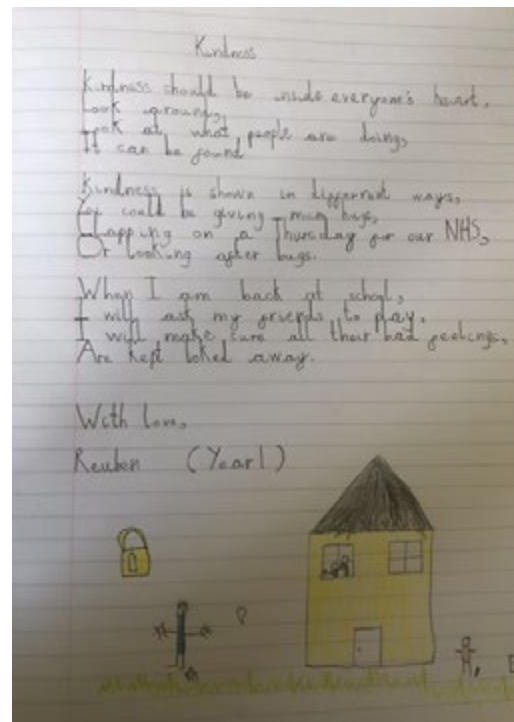 Kindness
Kindness should be inside everyone's heart,
Look around,
Look at what people are doing,
It can be found
Kindness is shown in different ways,
You could be giving mum hugs,
Clapping on a Thursday for our NHS,
Or looking after bugs.
When I am back at school,
I will ask my friends to play,
I will make sure all their bad feelings,
Are kept loked away.
With love,
Reuben (Year 1)